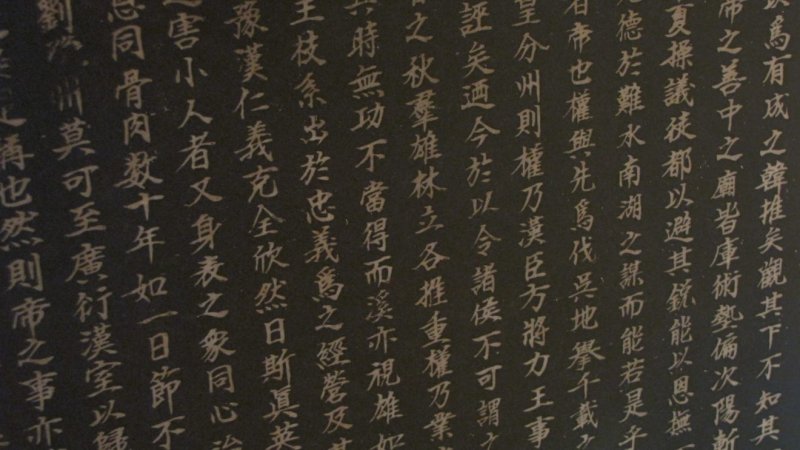 以爲有成之韓推矣觀其下不知其
帝之善中之廟皆庫術埶偏次陽斬
夏操議徒都以避其銳能以恩撫
德於難水南湖之謀而能若是乎
者帝也權與先爲伐吳地擧千載之
皇分州則權乃漢臣方將力王事
誣矣迺今於以令諸侯不可謂
之秋羣雄林立各推重權乃業
其時無功不當得而溪亦視雄如
王枝系出於忠義爲之經營及其
豫漢仁義充全欣然曰斯眞英
之害小人者又身表之衆同心
同骨肉数十年如一日節不
劉 州莫可至廣衍漢室以歸
稱也然則帝之事亦